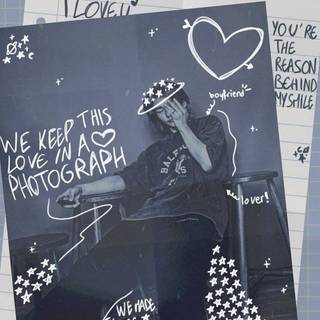 I LOVE U
YOU'RE
THE
REASON
BEHIND
MY SMILE
boyfriend
WE KEEP THIS
LOVE IN A
PHOTOGRAPH
lover!
WE MADE